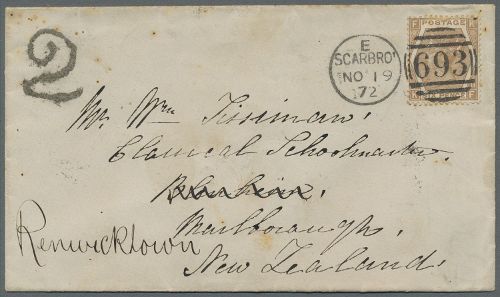 2
E
SCARBRO'
NO 19
72
F K
POSTAGE
693
SIX PENCE
K F
Mr. Wm Tissiman,
Classical Schoolmaster,
Blenheim,
Marlborough,
New Zealand.
Renwicktown